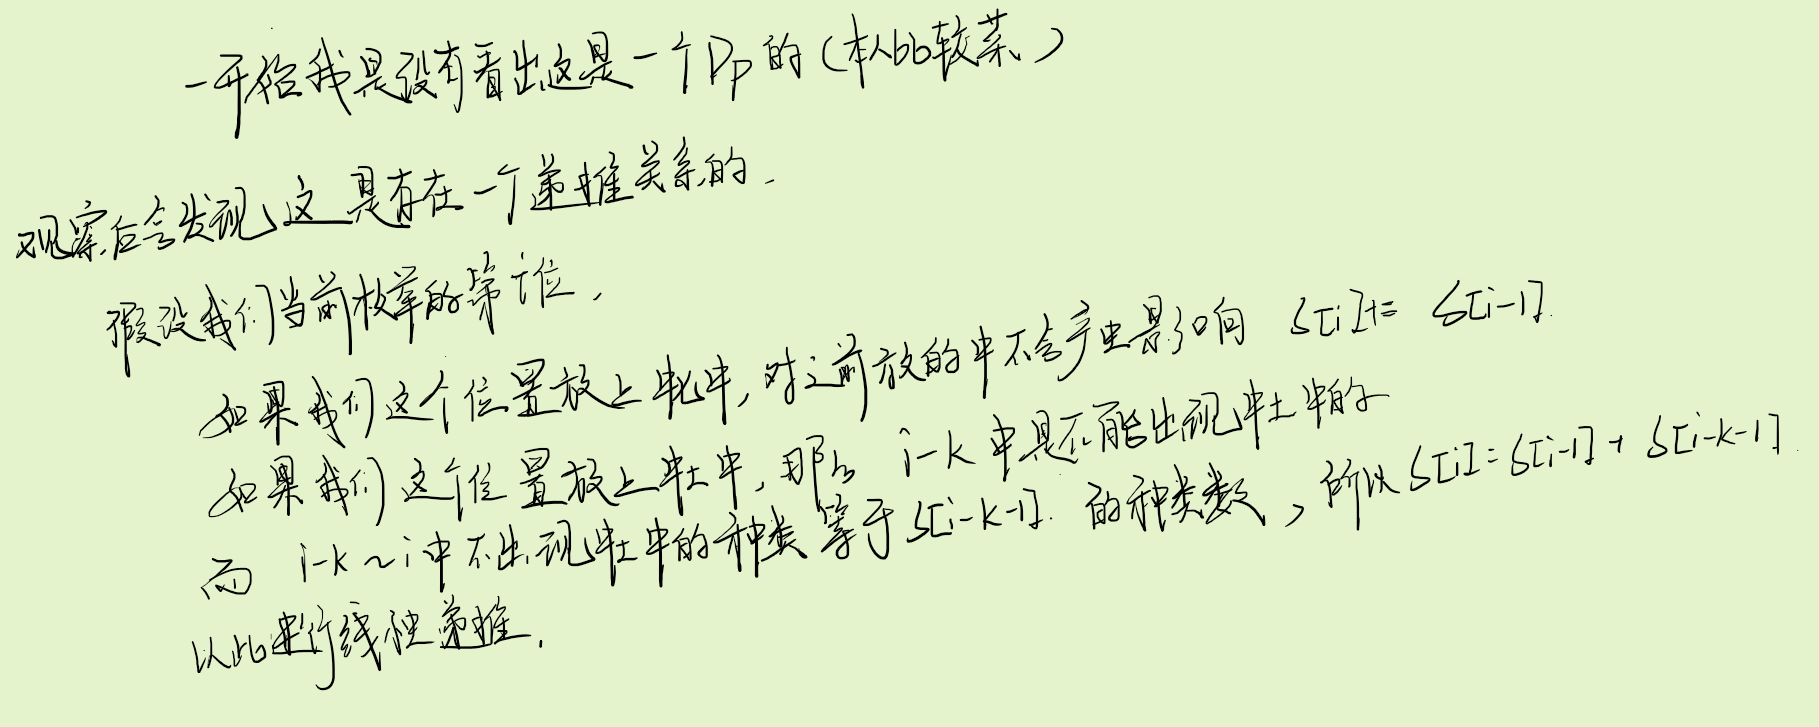 一开始我是没有看出这是一个Dp的(本人bb较菜)
观察后会发现,这是存在一个递推关系的.
假设我们当前枚举的第i位,
如果我们这个位置放上牝牛,对之前放的牛不会产生影响 S[i]+= S[i-1].
如果我们这个位置放上牡牛,那么 i-k 中是不能出现牡牛的
而 i-k~i中不出现牡牛的种类等于S[i-k-1]. 的种类数,所以S[i]=S[i-1]+S[i-k-1].
以此进行线性递推.